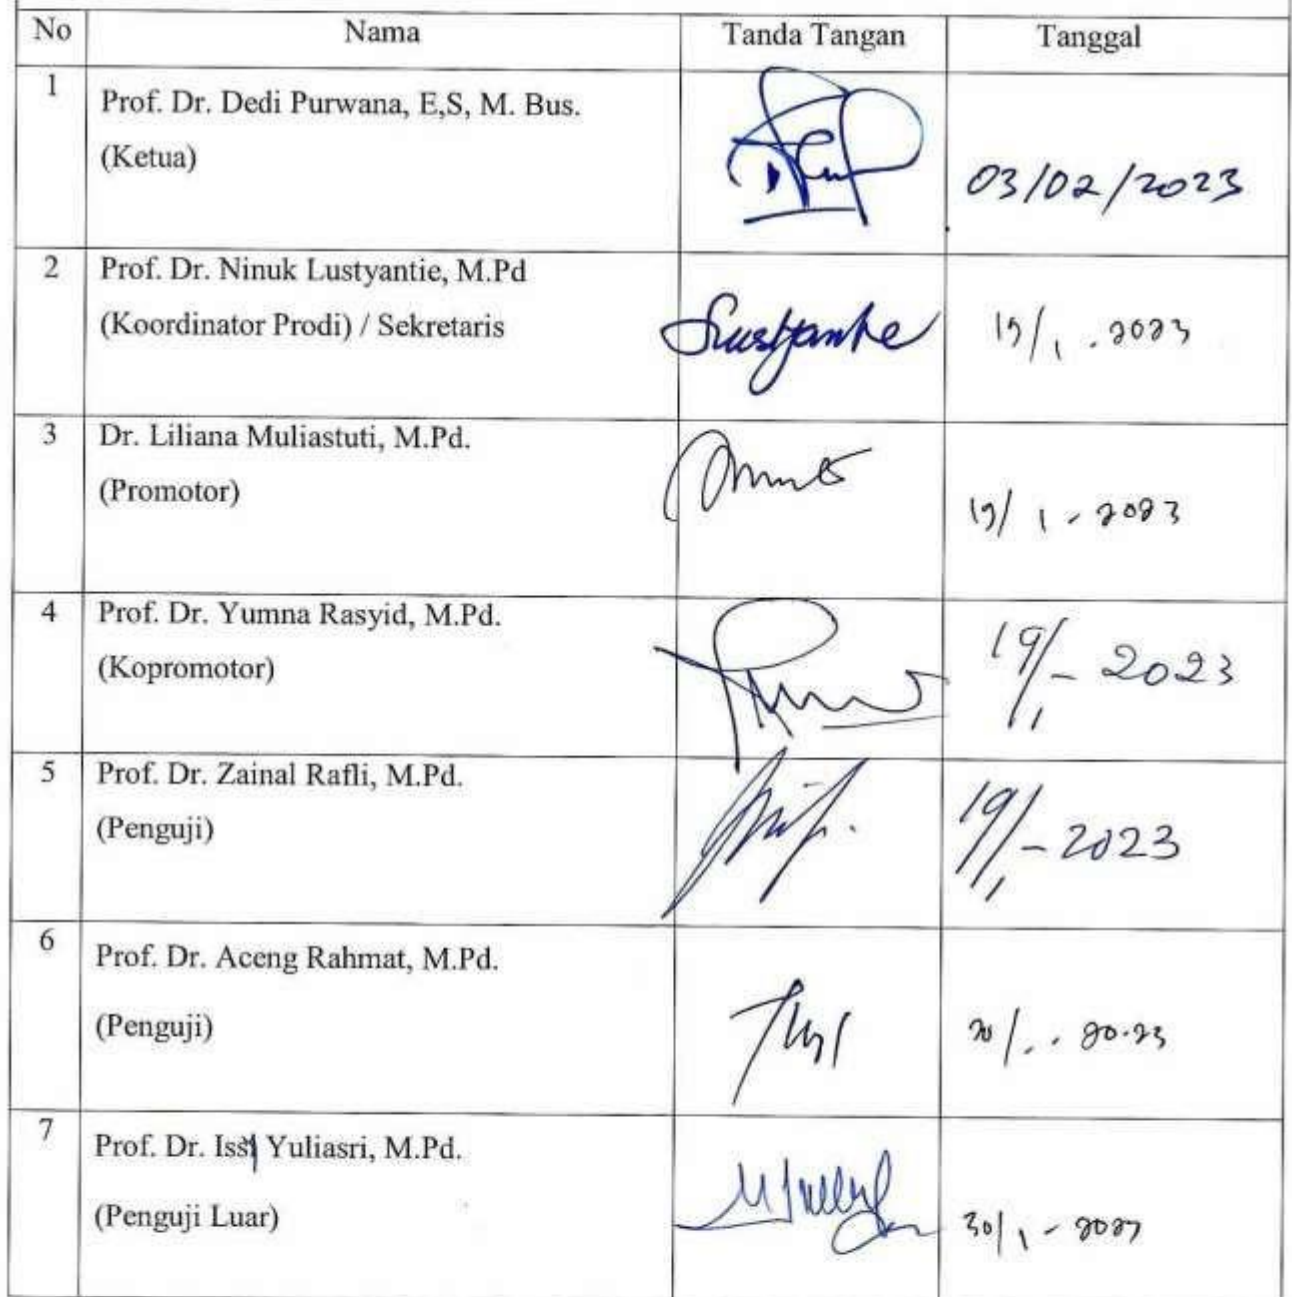 No Nama Tanda Tangan Tanggal
1 Prof. Dr. Dedi Purwana, E,S, M. Bus.
(Ketua)
03/02/2023
2 Prof. Dr. Ninuk Lustyantie, M.Pd
(Koordinator Prodi) / Sekretaris
19/1 . 2023
3 Dr. Liliana Muliastuti, M.Pd.
(Promotor)
19/ 1 - 2023
4 Prof. Dr. Yumna Rasyid, M.Pd.
(Kopromotor)
19/1 - 2023
5 Prof. Dr. Zainal Rafli, M.Pd.
(Penguji)
19/1 - 2023
6 Prof. Dr. Aceng Rahmat, M.Pd.
(Penguji)
7 Prof. Dr. Issy Yuliasri, M.Pd.
(Penguji Luar)
30/1 - 2023